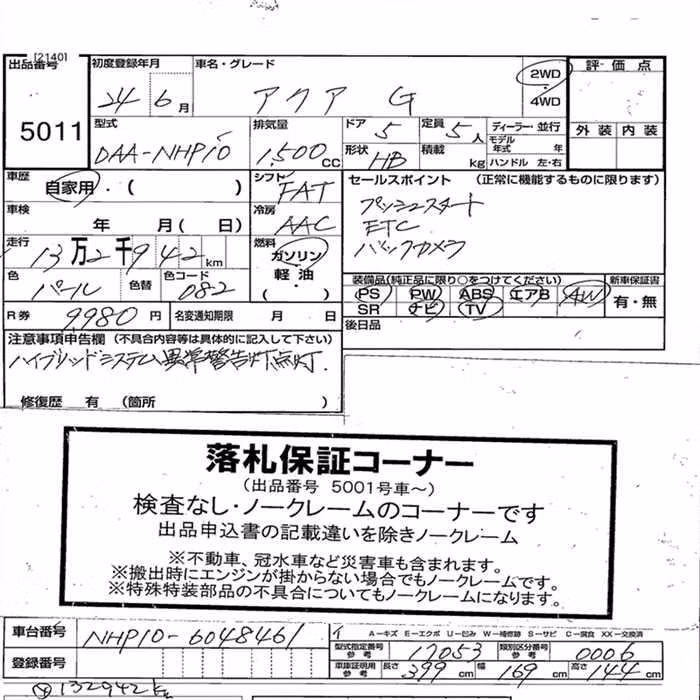 [2140]
出品番号 初度登録年月 車名・グレード 2WD 評価点
5011 24 6月 アクア G 4WD
型式 排気量 ドア 5 定員 5人 ディーラー・並行 外装 内装
DAA-NHP10 1,500CC 形状 HB 積載 kg モデル年式 年
ハンドル 左・右
車歴 自家用・( ) シフト FAT セールスポイント (正常に機能するものに限ります)
車検 年 月( 日) 冷房 AAC プッシュスタート
ETC
走行 13万2千942km 燃料 ガソリン・軽油・( ) バックカメラ
色 パール 色替 色コード 082 装備品(純正品に限り○をつけてください) 新車保証書
PS PW ABS エアB AW 有・無
SR ナビ TV
R券 9,980円 名変通知期限 月 日 後日品
注意事項申告欄 (不具合内容等は具体的に記入して下さい)
ハイブリッドシステム異常警告灯点灯.
修復歴 有 (箇所 )
落札保証コーナー
(出品番号 5001号車~)
検査なし・ノークレームのコーナーです
出品申込書の記載違いを除きノークレーム
※不動車、冠水車など災害車も含まれます。
※搬出時にエンジンが掛からない場合でもノークレームです。
※特殊特装部品の不具合についてもノークレームになります。
車台番号 NHP10-6048461 イ A-キズ E-エクボ U-凹み W-補修跡 S-サビ C-腐食 XX-交換済
登録番号 型式指定番号 参考 17053 類別区分番号 参考 0006
車庫証明用 参考 長さ 399cm 幅 169cm 高さ 144cm
132942km